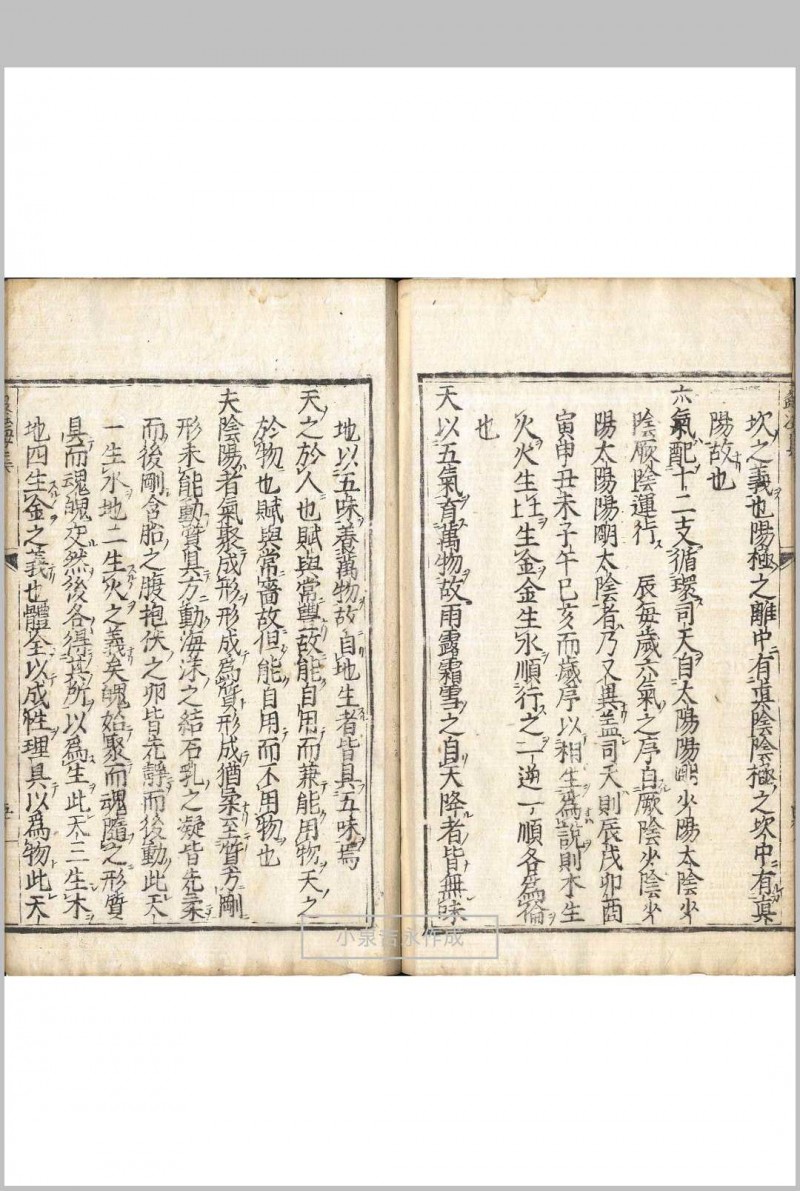 坎之義也陽極之離中有眞陰陰極之坎中有眞
陽故也
六氣配十二支循環司天自太陽陽明少陽太陰少
陰厥陰運行 辰每歲六氣之序自厥陰少陰少
陽太陽陽明太陰者乃又異蓋司天則辰戌卯酉
寅申丑未子午巳亥而歲序以相生爲說則木生
火火生土土生金金生水順行之一逆一順各爲倫
也
天以五氣育萬物故雨露霜雪之自天降者皆無味
地以五味養萬物故自地生者皆具五味焉
天之於人也賦與常豐故能自用而兼能用物天之
於物也賦與常嗇故但能自用而不用物也
夫陰陽者氣聚成形形成爲質形成猶柔至質方剛
形未能動質具方動海沫之結石乳之凝皆先柔
而後剛含胎之腹抱伏之卵皆先靜而後動此天
一生水地二生火之義矣魄始聚而魂隨之形質
具而魂魄交然後各得其所以爲生此天三生木
地四生金之義也體全以成性理具以爲物此天
小泉吉永作成